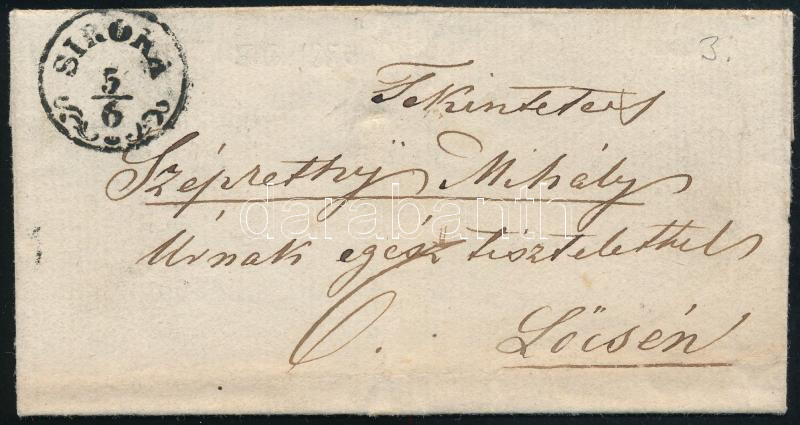 SIROKA
5
6
3.
Tekintetes
Széprethÿ Mihály
Úrnak egész tisztelettel
6. Löcsén
darabanth